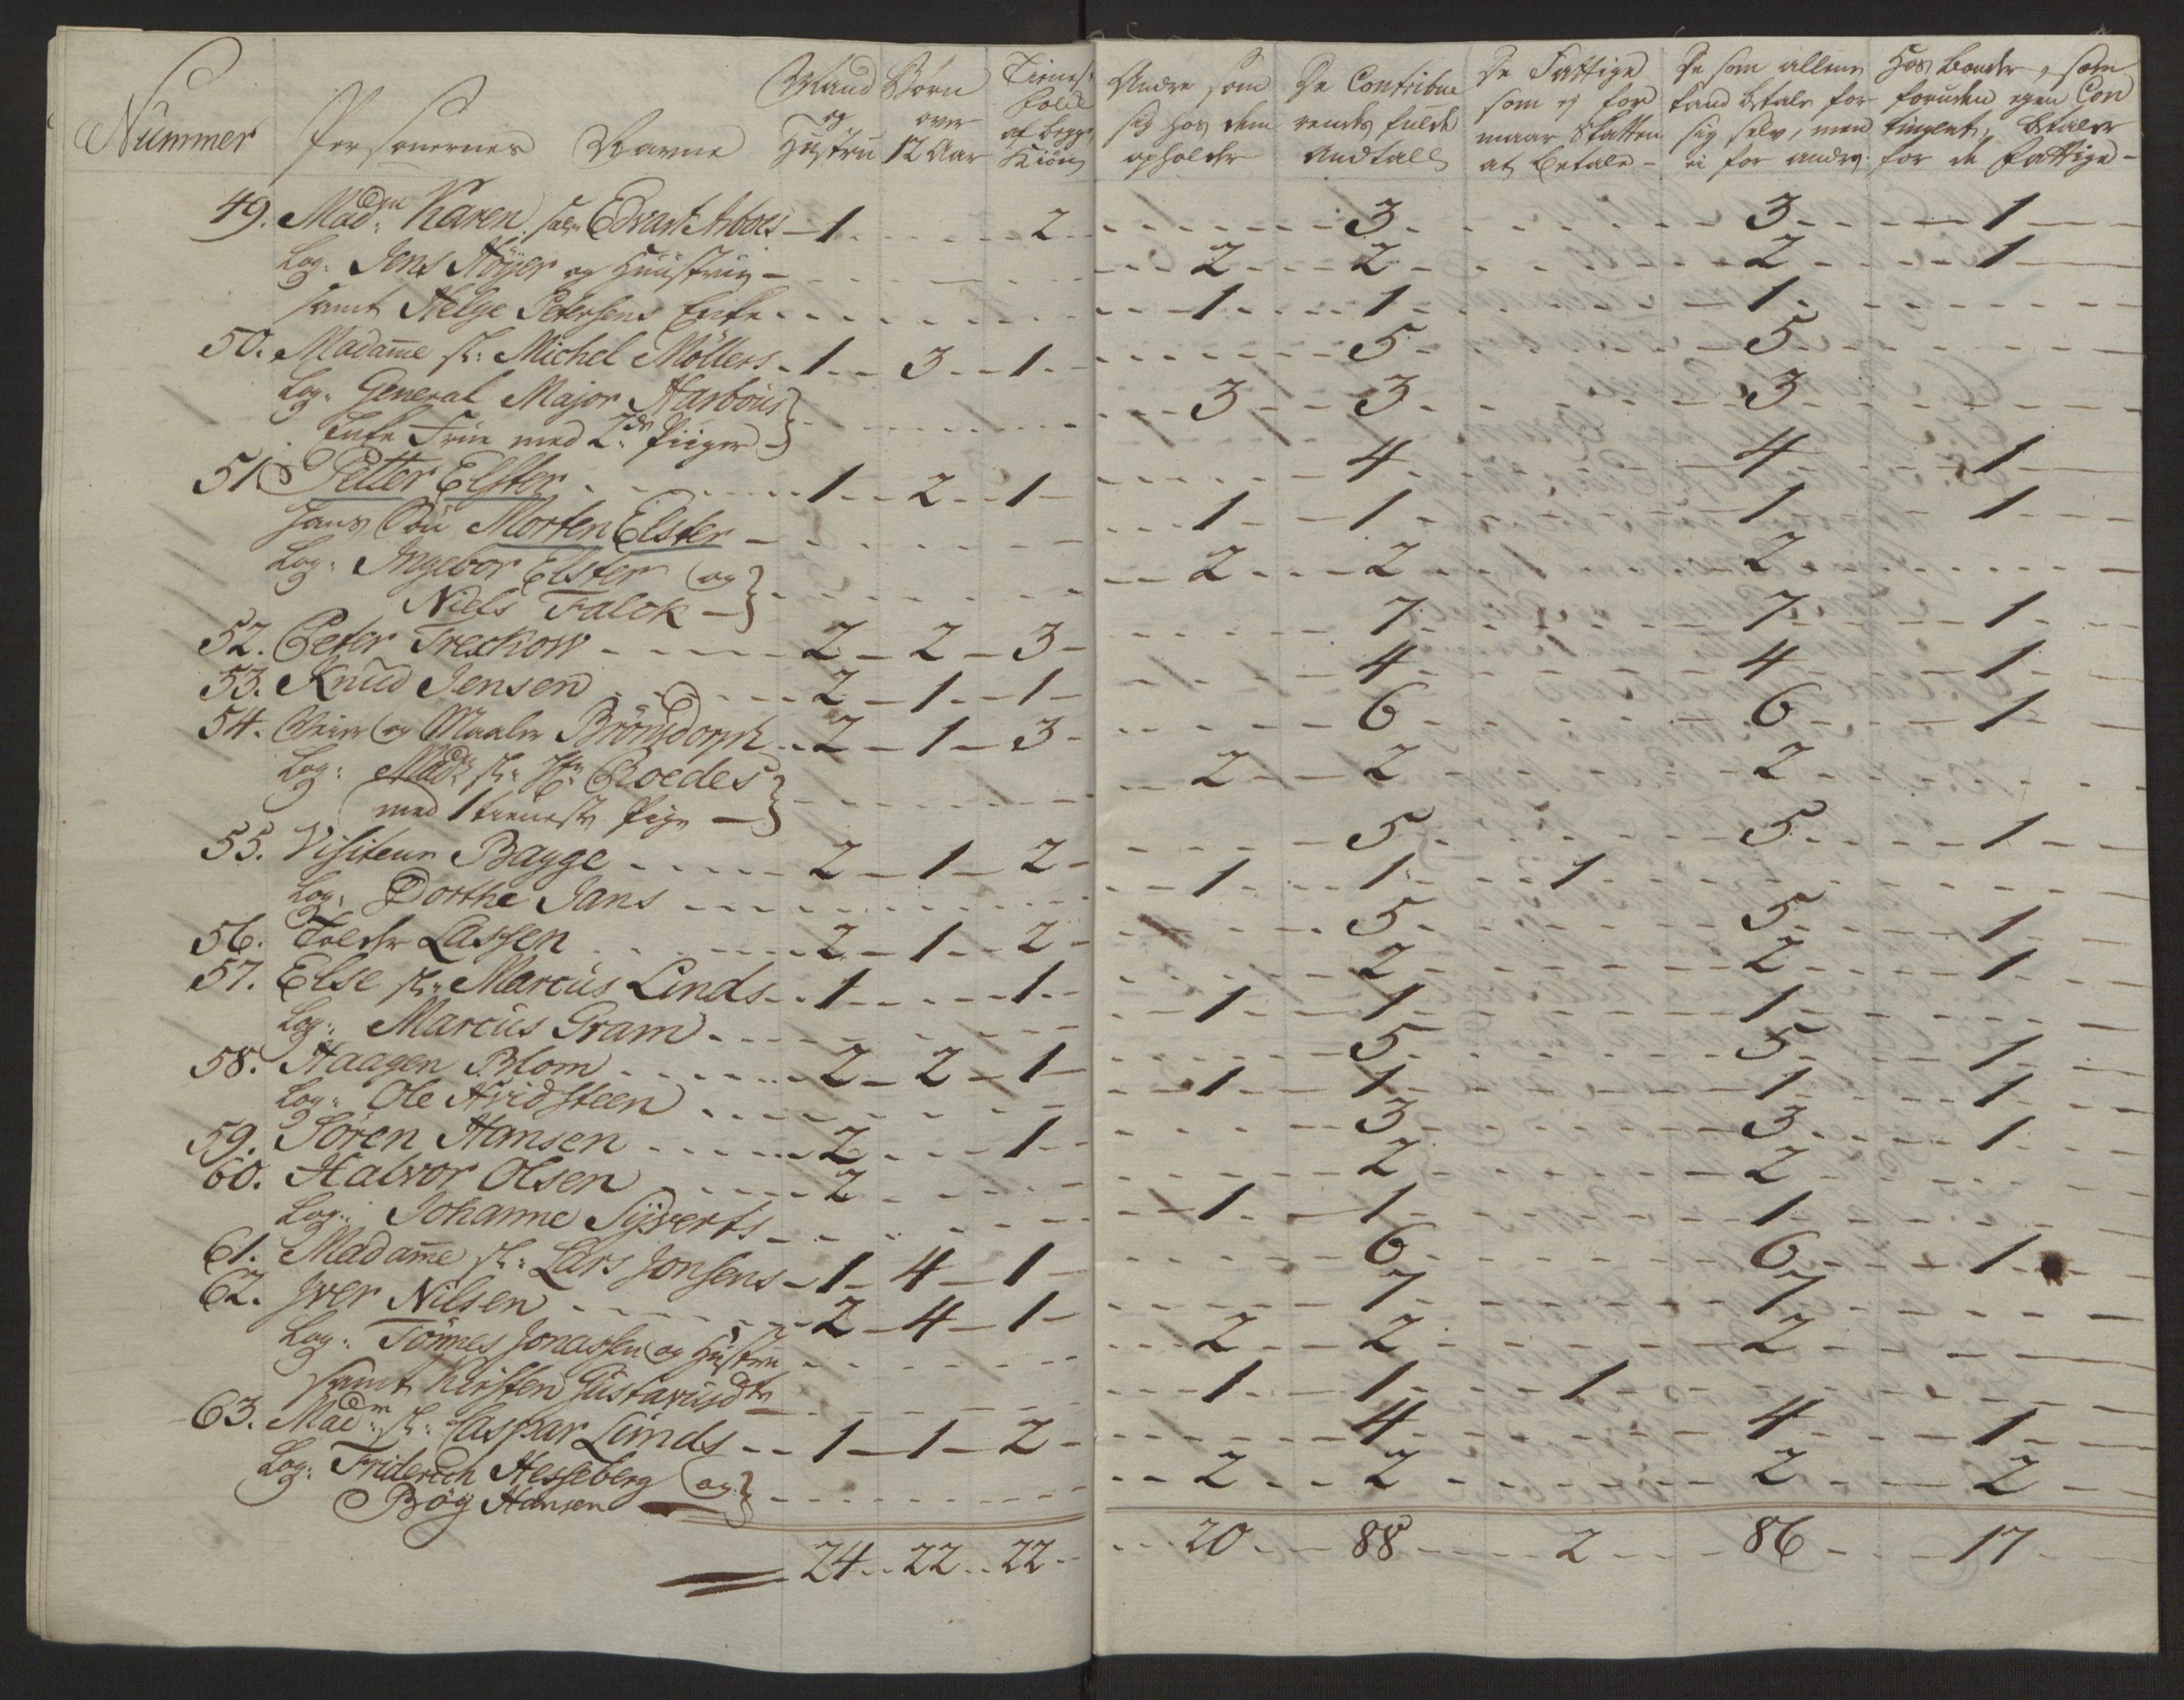 Nummer Personernes Navne Mand og Hustru Børn over 12 Aar Tieneste Folk af begge Kiøn Andre som sig hos dem opholder De Contribuerendes fulde Andtall De Fattige som ej formaar Skatten at betale - De som allene kand betale for sig selv, men ei for andre. Hos boender, som foruden egen Contingent, betaler for de fattige -
49. Mad.m Karen sal. Edvart Arboes - 1 . . . 2 . . . 3 . . . 3 . . . 1
Log. Jens Höyer og Huustrue - . . . 2 . . 2 . . . 2 . . . 1
samt Helge Petersens Enke . . . 1 . . 1 . . . 1
50. Madame sl: Michel Möllers . 1 . . 3 . . 1 . . . 5 . . . 5
Log. General Major Harboüs }
Enke Frue med 2.de Piiger } . . . 3 . . 3 . . . 3
51 Petter Elster . . . 1 . . 2 . . 1 . . . 4 . . . 4 . . . 1
hans Sön Morten Elster - . . . 1 . . 1 . . . 1 . . . 1
Log. Ingebor Elster og }
Niels Falck } . . . 2 . . 2 . . . 2
52. Peter Treckow . . . 2 - 2 - 3 - . . . 7 . . . 7 . . . 1
53. Knud Jensen . . . 2 - 1 - 1 - . . . 4 . . . 4 . . . 1
54. Veier og Maaler Brönsdorph . . 2 - 1 - 3 - . . . 6 . . . 6 . . . 1
Log: Mad.m sl. Hr. Roedes }
med 1 tieneste Pige } . . . 2 . . 2 . . . 2
55. Visiteur Bagge . . . 2 - 1 - 2 - . . . 5 . . . 5 . . . 1
Log. Dorthe Jans . . . 1 . . 1 . . . 1
56. Tolder Lassen . . . 2 - 1 - 2 - . . . 5 . . . 5 . . . 1
57. Else sl. Marcus Linds . . 1 . . . 1 . . . 2 . . . 2 . . . 1
Log. Marcus Gram . . . 1 . . 1 . . . 1
58. Haagen Blom . . . 2 - 2 - 1 - . . . 5 . . . 5 . . . 1
Log. Ole Hvidsteen . . . 1 . . 1 . . . 1 . . . 1
59. Sören Hansen . . . 2 . . . 1 . . . 3 . . . 3 . . . 1
60. Halvor Olsen . . . 2 . . . 2 . . . 2
Log. Johanne Syverts . . . 1 . . 1 . . . 1
61. Madame sl. Lars Jonsens - 1 - 4 - 1 - . . . 6 . . . 6 . . . 1
62. Iver Nilsen . . . 2 - 4 - 1 - . . . 7 . . . 7
Log. Tönnes Jonassen og Hustru . . . 2 . . 2 . . . 2
samt Kirsten Gustavusdtr . . . 1 . . 1 . . . 1
63. Mad.m sl. Caspar Lunds - - 1 - 1 - 2 - . . . 4 . . . 4 . . . 1
Log. Friderich Hesseberg og }
Böy Hansen } . . . 2 . . 2 . . . 2 . . . 2
24 . . 22 . . 22 . . . 20 . . 88 . . . 2 . . . 86 . . . 17